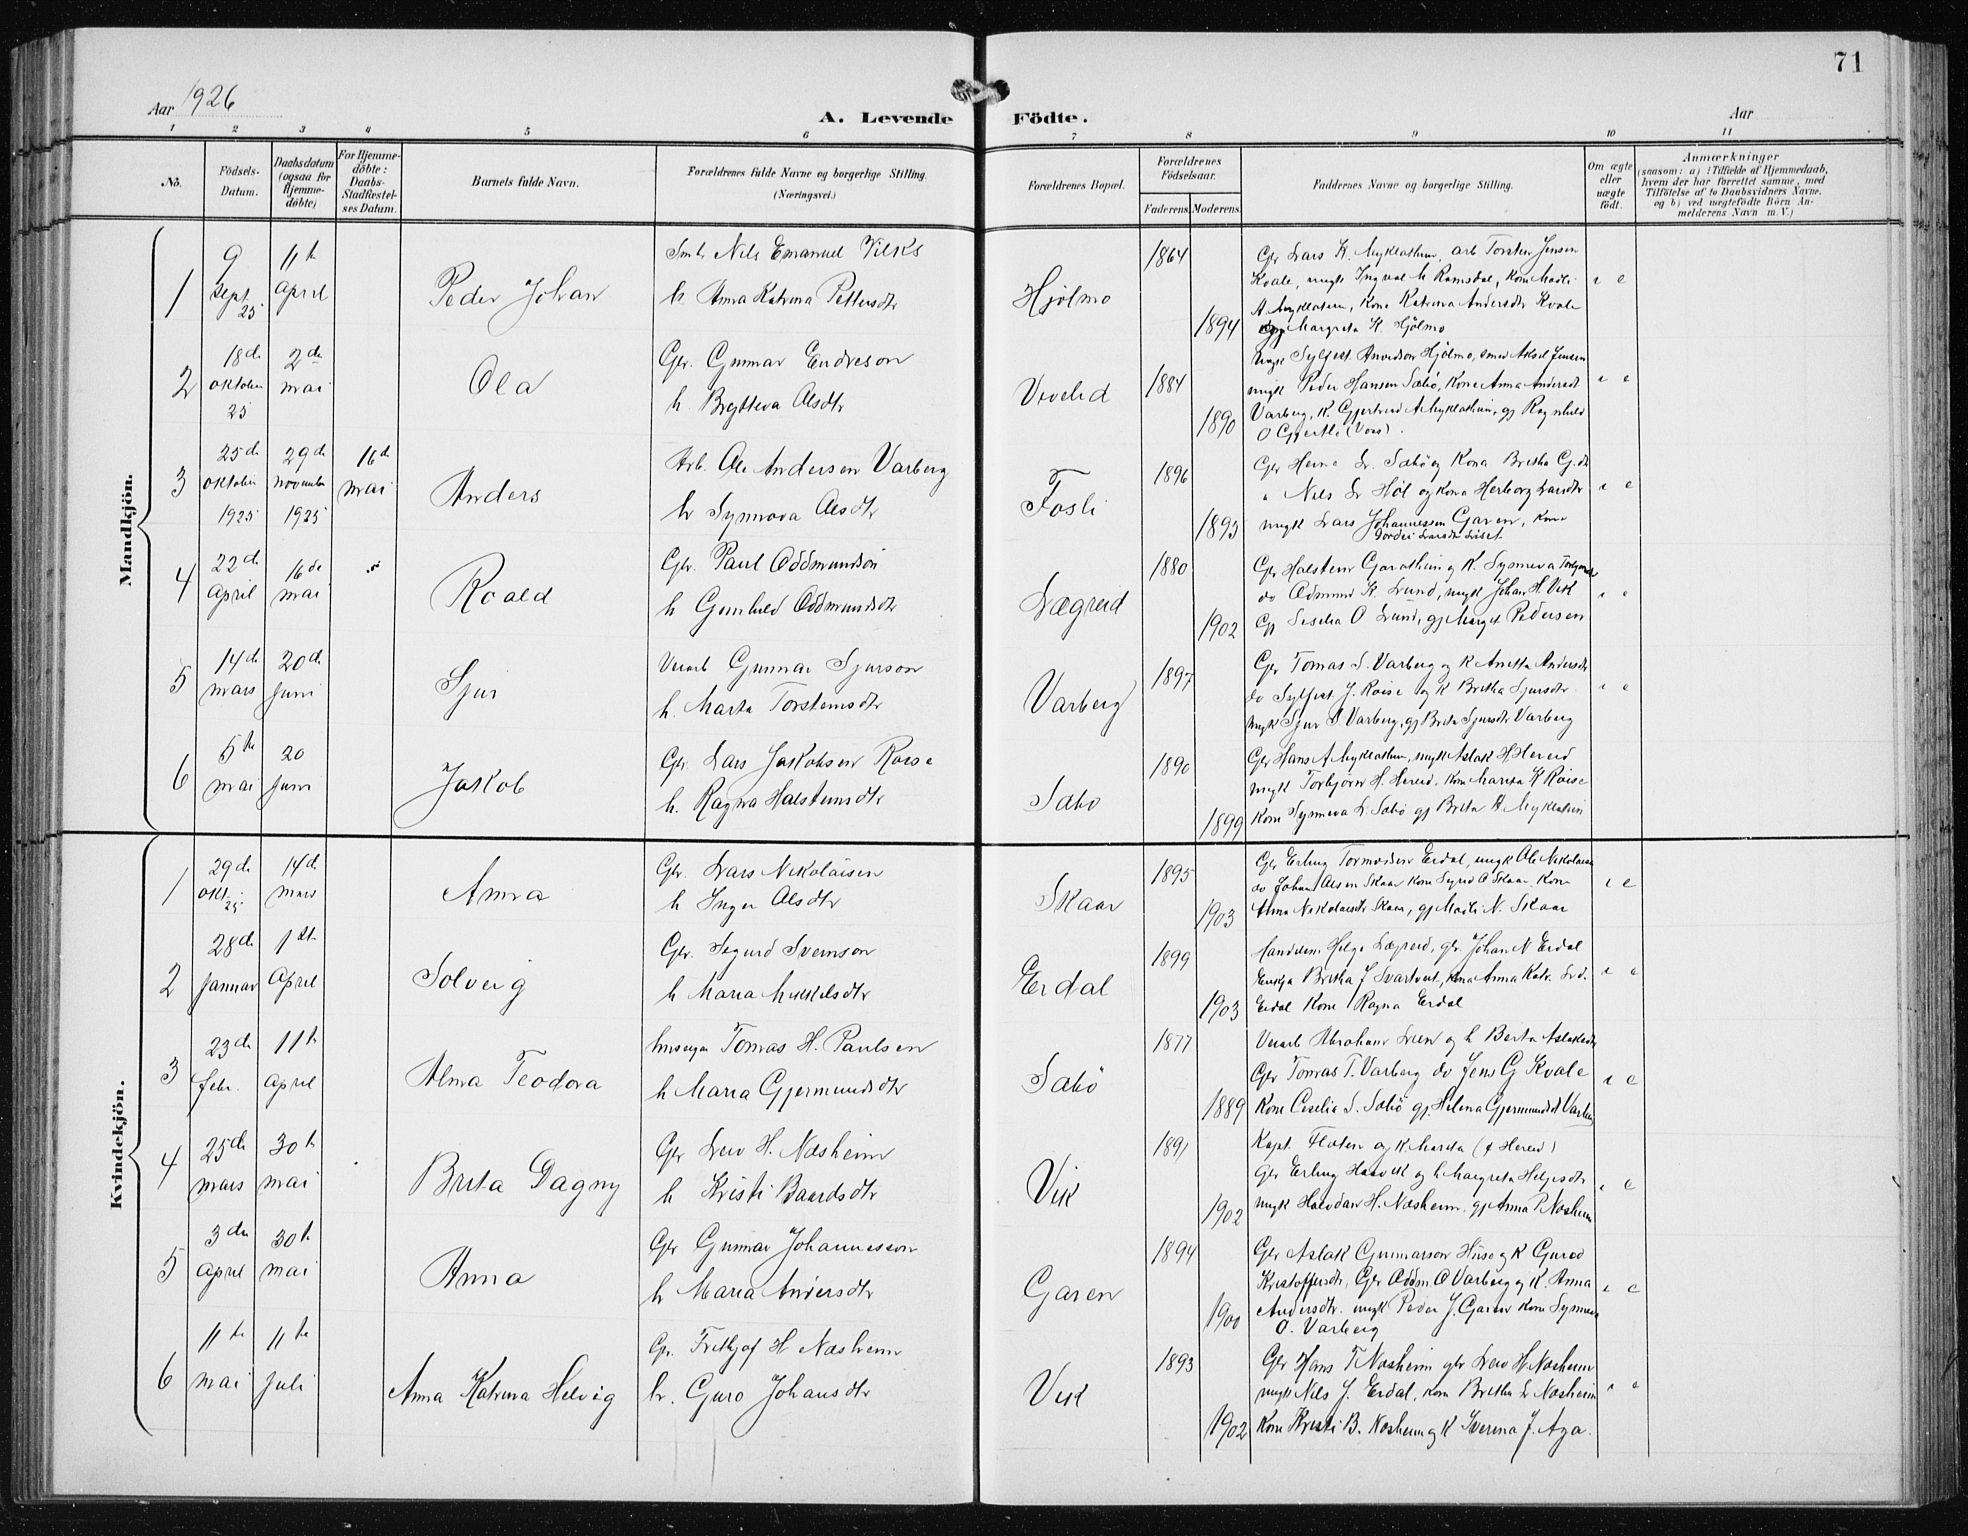 71
Aar 1926
A. Levende Födte.
Aar
1 2 3 4 5 6 7 8 9 10 11
No.
Födsels-
Datum.
Daabsdatum
(ogsaa for
Hjemme-
döbte)
For Hjemme-
döbte:
Daabs-
Stadfæstel-
ses Datum.
Barnets fulde Navn.
Forældrenes fulde Navne og borgerlige Stilling.
(Næringsvei.)
Forældrenes Bopæl.
Forældrenes
Födselsaar.
Faderens.
Moderens.
Faddernes Navne og borgerlige Stilling.
Om ægte
eller
uægte
födt.
Anmærkninger
(saasom: a) i Tilfælde af Hjemmedaab,
hvem der har forrettet samme, med
Tilföielse af to Daabsvidners Navne,
og b) ved uægtefödte Börn An-
melderens Navn m. V.)
Mandkjön.
1
9 Sept. 25
11te April
Peder Johan
Nils Emanuel Vilks
h. Anna Katrina Pettersdtr
Hjølmo
1864
1894
Gbr Lars K. Myklathun, arb Torsten Jensen
Kvale, ungk Ingval M Ramsdal, Kone
A Myklatun, Kone Katrina Andersdtr Kvale
Margreta K. Hjölmo
2
18de oktober 25
2den mai
Ola
Gbr. Gunnar Endreson
h. Brytteva Olsdtr
Vivelid
1884
1890
ungk Sylfest Hjölmo, smed Aksel Jensen
ungk Peder Hansen Sæbö, Kone Anna Andersdtr
Varberg, K. Gjertrud A Myklathun, gj Ragnhild
O Gjerdte (Voss).
3
25de oktober 1925
29de november 1925
16de mai
Anders
Arb. Ole Andersen Varberg
h Synnova Olsdtr
Fosli
1896
1893
Gbr Herne Sæbö og Kona Britha
" Nils Hól og Kona Herborg Larsdtr
ungk Lars Johannessen Garen, Kone
4
22de April
16de mai
Roald
Gbr. Paul Oddmundson
h Gunhild Oddmundsdtr
Lægreid
1880
1902
Gbr Halstein Garathun og K. Synneva
do Odmund K. Lund, ungk Johan H. Vik
Gj Sesilia O Lund, gj Marget Pedersen
5
14de mars
20de Juni
Sjur
Gunnar Sjurson
h. Marta Torsteinsdtr
Varberg
1897
Gbr Tomas S. Varberg og K Anetta Andersdtr
do Sylfest J. Roise og K Britha Sjursdtr
ungk Sjur S Varberg, gj Brita Sjursdtr Varberg
6
5te mai
20 Juni
Jakob
Gbr. Lars Jakobsen Roise
h. Ragna Halsteinsdtr
Sæbo
1890
1899
Gbr Hans A Myklathun, ungk Aslak H Hereid
ungk Torbjörn H. Hereid. Kone Marita K Röise
Kone Synneva L. Sæbö gj Brita A Myklathun
Kvindekjön.
1
29de okt. 25
14de mars
Anna
Gbr. Lars Nikolaisen
h Inger Olsdtr
Skaar
1895
1903
Gbr Erling Tormodsen Erdal, ungk Ole Nikolaisen
do Johan Olsen Skaar Kone Sigrid O Skaar. Kone
Anna Nikolaisdtr Skaar, gj Marta N. Skaar
2
28de Januar
1ste April
Solveig
Gbr. Sigurd Sveinson
h Maria Mikkelsdtr
Erdal
1899
1903
Handelsm Helge Lægreid, gbr Johan N Erdal
Enkja Britha J Svartveit, Kona Anna Katr.
Erdal Kone Ragna Erdal
3
23de febr.
11te April
Alma Teodora
Tomas H. Paulsen
h Maria Gjermundsdtr
Sæbö
1877
1889
Abraham Lien og h Berta Aslaksdtr
Gbr Tomas T. Varberg do Jens G Kvale
Kone Ceselia S. Sæbö gj. Helena Gjermundsdtr
4
25de mars
30te mai
Brita Dagny
Gbr Leiv H. Næsheim
h Kristi Baardsdtr
Vik
1891
1902
Kapt. Floten og K Marita (f Hereid)
Gbr Erling Haavik og h Margreta Helgesdtr
ungk Halvdan H. Næsheim. gj Anna P Næsheim
5
3de April
30te mai
Anna
Gbr Gunnar Johannesson
h Maria Andersdtr
Garen
1894
1900
Gbr Aslak Gunnarson Huse og K Gurid
Kristoffersdtr, Gbr Oddm. O Varberg og K. Anna
Andersdtr. ungk Peder J. Garen Kone Synneva
O. Varberg
6
11te mai
11te Juli
Anna Katrina Helvig
Gbr. Fritjof H Næsheim
h. Guro Johansdtr
Vik
1893
1902
Gbr Hans T Næsheim gbr Leiv H Næsheim
ungk Nils J. Erdal, Kone Britha L Næsheim
Kone Kristi B. Næsheim og K Iverina J. Aga.